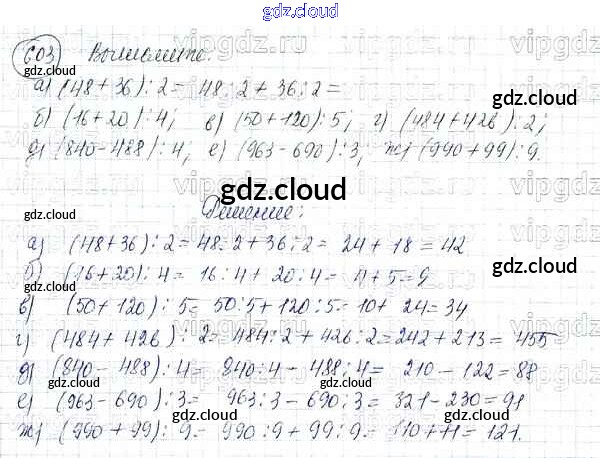 gdz.cloud
vipgdz.ru vipgdz.ru
603 Вычислите.
gdz.cloud gdz.cloud
а) (48+36):2= 48:2+36:2=
б) (16+20):4; в) (50+120):5; г) (484+426):2;
д) (840-488):4; е) (963-690):3; ж) (990+99):9.
gdz.cloud gdz.cloud
gdz.cloud
Решение:
а) (48+36):2=48:2+36:2= 24+18=42
б) (16+20):4= 16:4+20:4= 4+5=9
gdz.cloud gdz.cloud
в) (50+120):5= 50:5+120:5=10+ 24=34
г) (484+426):2=484:2+426:2=242+213=455
gdz.cloud
д) (840-488):4= 840:4-488:4= 210-122=88
gdz.cloud gdz.cloud
е) (963-690):3= 963:3-690:3= 321-230=91
ж) (990+99):9= 990:9+99:9= 110+11=121.
gdz.cloud